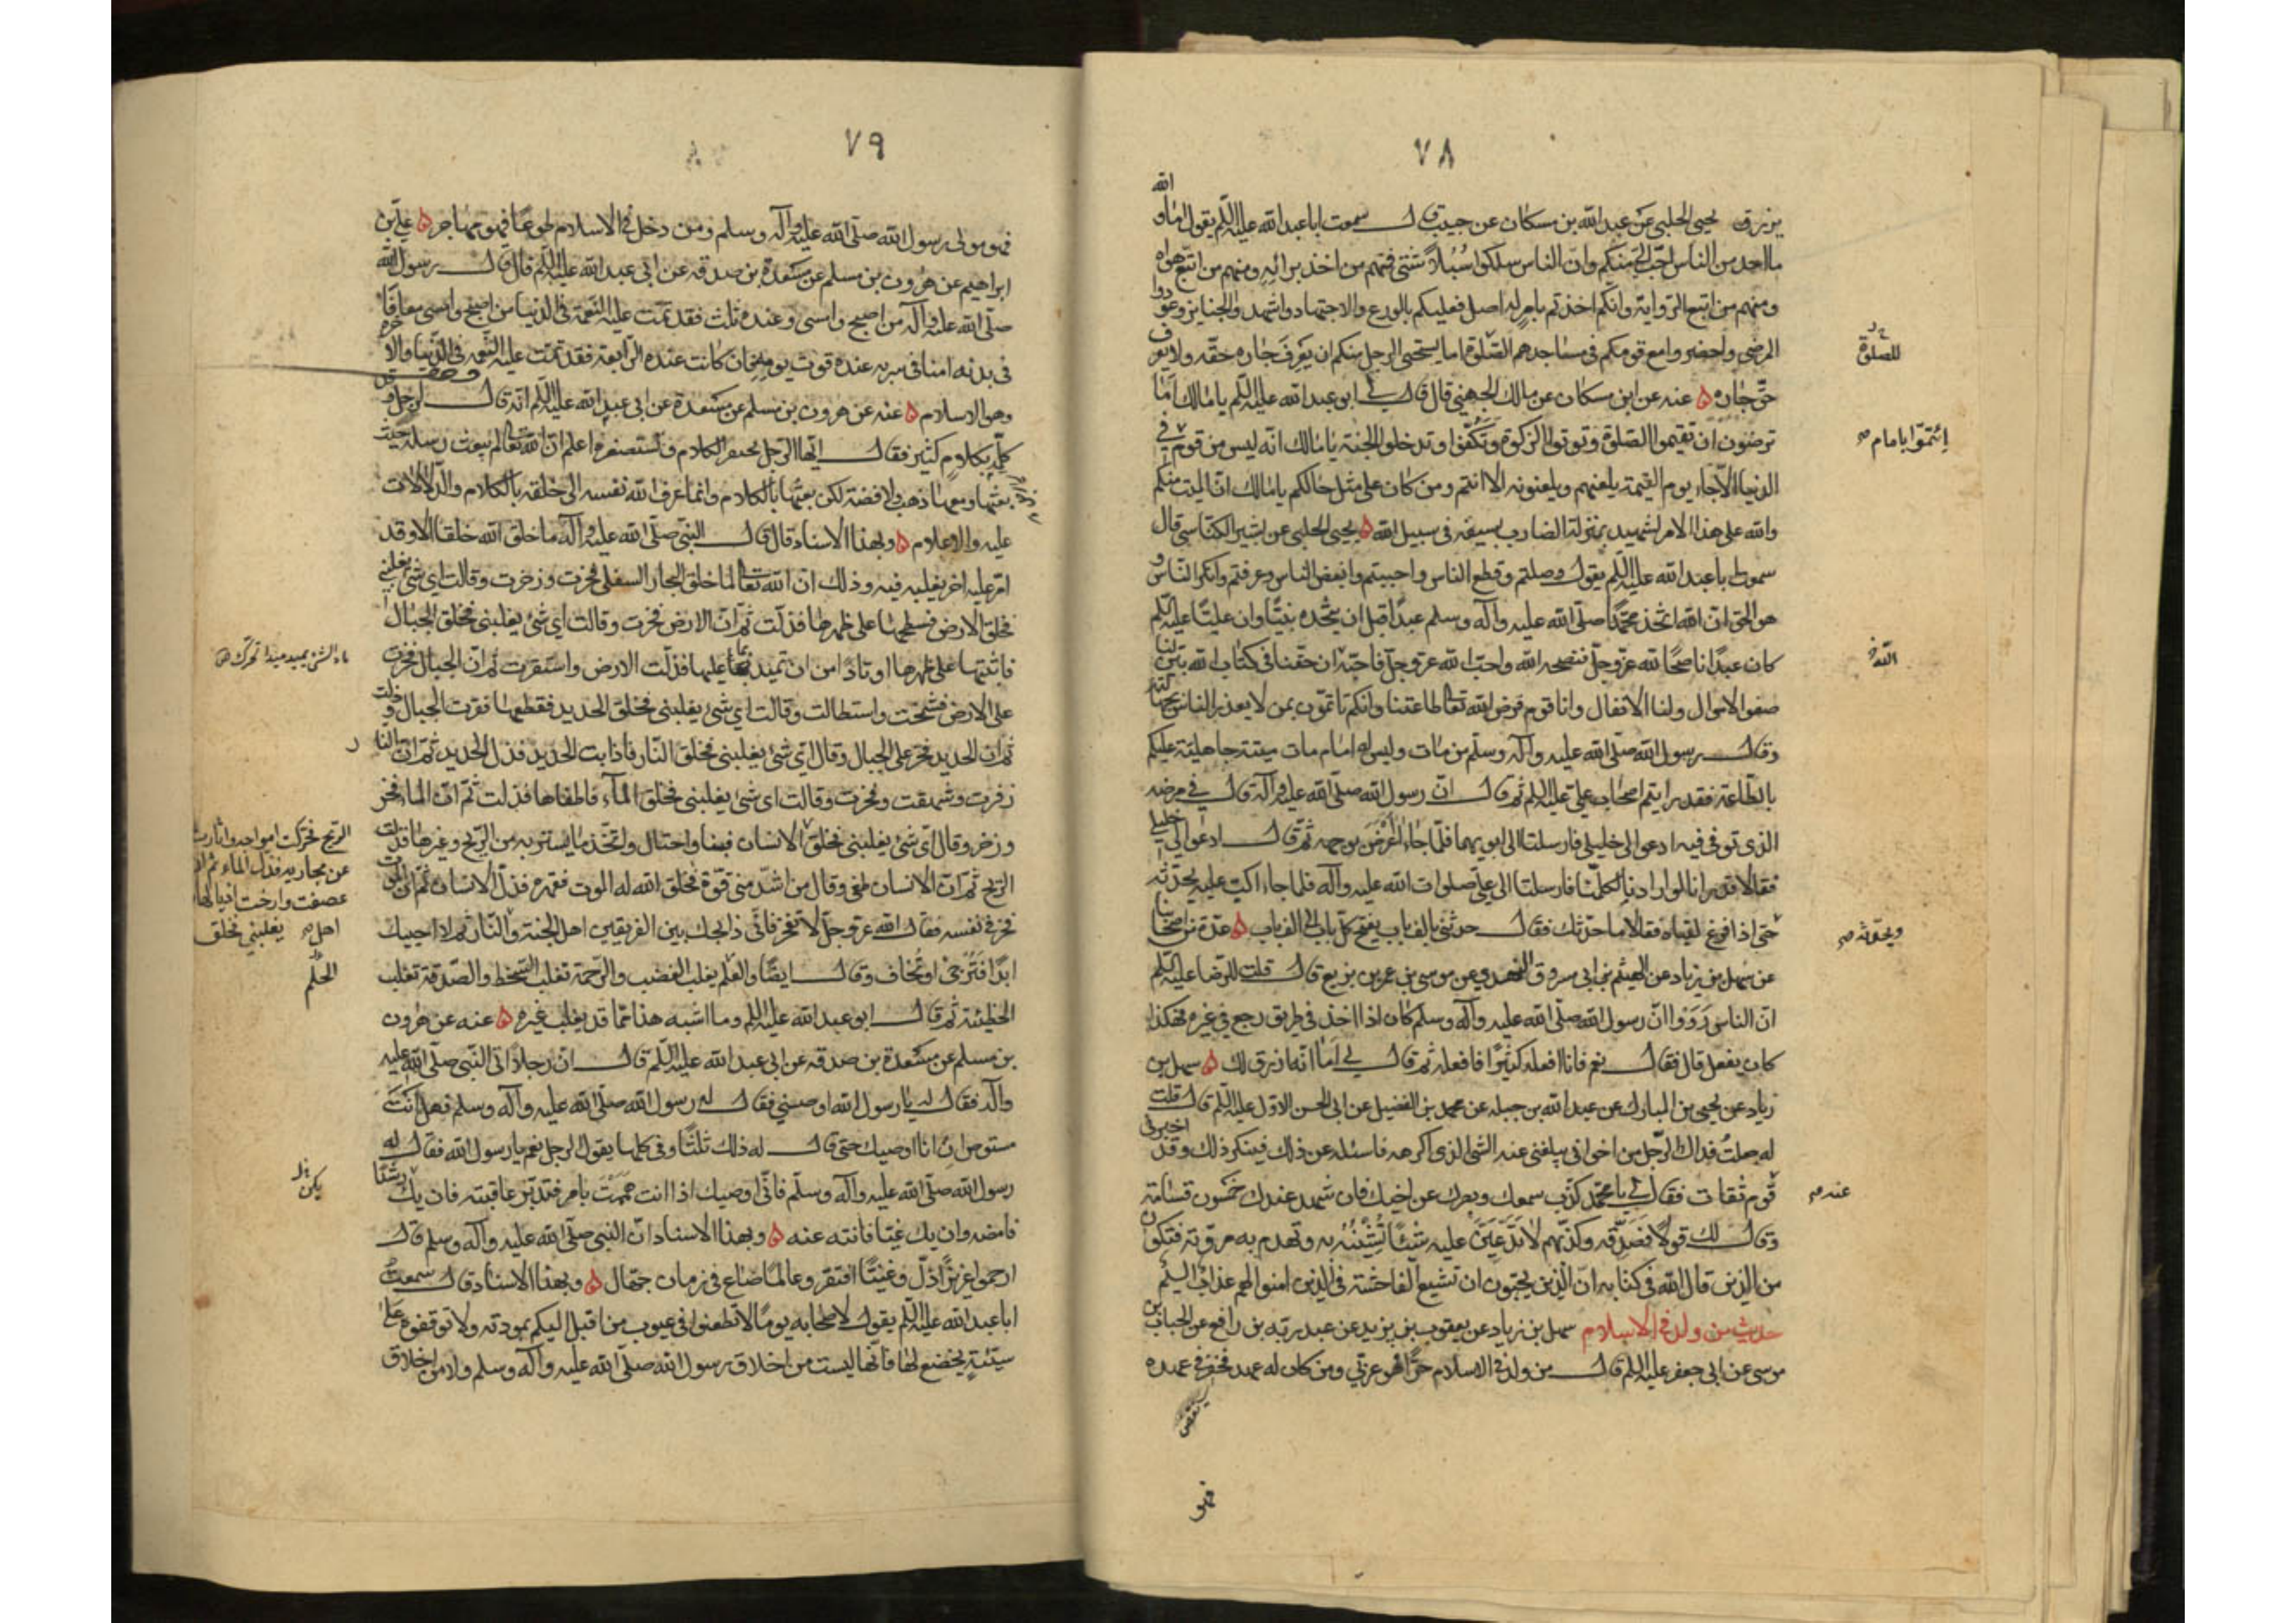 ٧٨
الله
يزرق يحيى الحلبي عن عبد الله بن مسكان عن حبيب قال سمعت ابا عبد الله عليه السلم يقول اما و
ما احد من الناس احبّ اليّ منكم وانّ الناس سلكوا سُبُلاً شتى فمنهم من اخذ برائه ومنهم من اتبع هواه
ومنهم من اتبع الرواية وانكم اخذتم بامر له اصل فعليكم بالورع والاجتهاد واشهدوا الجنايز وعودوا
المرضى واحضروا مع قومكم في مساجدهم الصلوة اما يستحيى الرجل منكم ان يَعرفَ جاره حقه ولا يعرف
للصلوة
حقّ جاره ه عنه عن ابن مسكان عن مالك الجهني قال قال لي ابو عبد الله عليه السلم يا مالك اما
ترضون ان تقيموا الصلوة وتوتوا الزكوة وتكفّوا وتدخلوا الجنة يا مالك انه ليس من قوم في
إئتمّوا بامام صح
الدنيا الّا جاء يوم القيمة يلعنهم ويلعنونه الا انتم ومن كان على مثل حالكم يا مالك انّ الميت منكم
والله على هذا الامر لشهيد بمنزلة الضارب بسيفه في سبيل الله ه يحيى الحلبي عن بشير الكناسي قال
سمعت ابا عبد الله عليه السلم يقول وصلتم وقطع الناس واحببتم وابغض الناس وعرفتم وانكر الناس و
هو الحق ان الله اتخذ محمّدًا صلّى الله عليه وآله وسلم عبدًا قبل ان يتّخذه نبيًّا وان عليًّا عليه السلم
كان عبدًا ناصحًا لله عزّ وجلّ فنصحه الله واحبّ الله عز وجلّ فاحبّه ان حقنا في كتاب الله بيّن لنا
صفو الاموال ولنا الانفال وانا قوم فرض الله تعالى طاعتنا وانكم تاتمّون بمن لا يعذر الناس بجهالته
وقال رسول الله صلّى الله عليه وآله وسلّم من مات وليس له امام مات ميتة جاهلية عليكم
بالطّاعة فقد رايتم اصحاب علي عليه السلم ثم قال انّ رسول الله صلّى الله عليه وآله قال في مرضه
الذي توفي فيه ادعوا لي خليلي فارسلتا الى ابويهما فلمّا جاءا أعرضَ بوجهه ثم قال ادعوا لي خليلي
فقالا قد رانا لو ارادنا لكلّمنا فارسلتا الى علي صلوات الله عليه وآله فلما جاء اكبّ عليه يحدّثه
ويحدّثه صح
حتى اذا فرغ لقياه فقالا ما حدّثك فقال حدثني بالف باب يفتح كل باب الى الف باب ه عدة من اصحابنا
عن سهل بن زياد عن الهيثم بن ابي مسروق النهدي عن موسى بن عمر بن بزيع قال قلت للرضا عليه السلم
انّ الناس رَوَوا انّ رسول الله صلّى الله عليه وآله وسلم كان اذا اخذ في طريق رجع في غيره فهكذا
كان يفعل قال فقال نعم فانا افعله كثيرًا فافعله ثم قال لي اما انّه ارزق لك ه سهل بن
زياد عن يحيى بن المبارك عن عبد الله بن جبلة عن محمد بن الفضيل عن ابي الحسن الاوّل عليه السلم قال قلت
له جعلتُ فداك الرّجل من اخواني يبلغني عنه الشئ الذي اكرهه فاسئله عن ذلك فينكر ذلك وقد اخبرني
عنه صح
قوم ثقات فقال لي يا محمّد كذّب سمعك وبصرك عن اخيك فان شهد عندك خمسون قسامة
وقال لك قولًا فصدّقه وكذّبهم لا تذيعَنّ عليه شيئًا تشينُهُ به وتهدم به مروّته فتكون
من الذين قال الله في كتابه انّ الّذين يحبّون ان تشيع الفاحشة في الذين امنوا لهم عذاب اليم
حديث من ولد في الاسلام سهل بن زياد عن يعقوب بن يزيد عن عبد ربّه بن رافع عن الحباب بن
موسى عن ابي جعفر عليه السلم قال من ولد في الاسلام حرًّا فهو عربيّ ومن كان له عهد فخفر في عهده
فهو
٧٩
فهو مولى رسول الله صلّى الله عليه وآله وسلم ومن دخل في الاسلام طوعًا فهو مهاجر ه علي بن
ابراهيم عن هرون بن مسلم عن مسعدة بن صدقه عن ابي عبد الله عليه السلم قال قال رسول الله
صلّى الله عليه وآله من اصبح وامسى وعنده ثلث فقد تمت عليه النعمة في الدنيا من اصبح وامسى معافًا
في بدنه امنا في سربه عنده قوت يومه فان كانت عنده الرابعة فقد تمت عليه النعمة في الدنيا والاخرة
وهو الاسلام ه عنه عن هرون بن مسلم عن مسعدة عن ابي عبد الله عليه السلم انّه قال لرجل و
كلّمه بكلام كثير فقال ايّها الرجل تحتقر الكلام وتستصغره اعلم ان الله تعالى لم يبعث رسله حيث
بعثها ومعها ذهب ولا فضة لكن بعثها بالكلام وانما عرف الله نفسه الى خلقه بالكلام والدّلالات
عليه والاعلام ه وبهذا الاسناد قال قال النبي صلّى الله عليه وآله ما خلق الله خلقا الا وقد
امّر عليه اخر يغلبه فيه وذلك انّ الله تعالى لما خلق البحار السفلى فخرت وزخرت وقالت اي شئ يغلبني
فخلق الارض فسطحها على ظهرها فذلّت ثم انّ الارض فخرت وقالت اي شئ يغلبني فخلق الجبال
ماد الشئ يميد ميدا تحرك ص
فاثبتها على ظهرها اوتادًا من ان تميد بما عليها فذلّت الارض واستقرت ثم انّ الجبال فخرت
على الارض فشمخت واستطالت وقالت اي شئ يغلبني فخلق الحديد فقطعها فقرت الجبال وذلت
ثم ان الحديد فخر على الجبال وقال اي شئ يغلبني فخلق النار فاذابت الحديد فذل الحديد ثم ان النار
زفرت وشهقت وفخرت وقالت اي شئ يغلبني فخلق المآء فاطفاها فذلت ثم ان الماء فخر
وزخر وقال اي شئ يغلبني فخلق الانسان فبنا واحتال واتخذ ما يستتر به من الريح وغيرها فذلت
الريح فحركت امواجه واثارت
عن مجاريه فذل الماء ثم ان
عصفت وارخت اذيالها
يغلبني فخلق
الريح ثم انّ الانسان طغى وقال من اشدّ مني قوّة فخلق الله له الموت فقهره فذلّ الانسان ثم ان الموت
فخر في نفسه فقال الله عز وجل لا تفخر فانّي ذابحك بين الفريقين اهل الجنة والنار ثم لا احييك
اهل صح
ابدًا فتُرجى او تُخاف وقال ايضًا والعلم يغلب الغضب والرّحمة تغلب السّخط والصّدقة تغلب
الحلم
الخطيئة ثم قال ابو عبد الله عليه السلم وما اشبه هذا ممّا قد يغلب غيره ه عنه عن هرون
بن مسلم عن مسعدة بن صدقه عن ابي عبد الله عليه السلم قال انّ رجلاً اتى النّبي صلّى الله عليه
وآله فقال له يا رسول الله اوصني فقال له رسول الله صلّى الله عليه وآله وسلم فهل انت
مستوص ان انا اوصيك حتى قال له ذلك ثلثًا وفي كلها يقول الرجل نعم يا رسول الله فقال له
رسول الله صلّى الله عليه وآله وسلّم فانّي اوصيك اذا انت هممت بامر فتدبّر عاقبته فان يك رشدًا
يكن
فامضه وان يك غيًّا فانته عنه ه وبهذا الاسناد ان النبي صلّى الله عليه وآله وسلم قال
ارحموا عزيزًا ذلّ وغنيًّا افتقر وعالمًا ضاع في زمان جهّال ه وبهذا الاسناد قال سمعت
ابا عبد الله عليه السلم يقول لاصحابه يومًا لا تطعنوا في عيوب من اقبل اليكم بمودته ولا توقفوه على
سيّئةٍ يخضع لها فانّها ليست من اخلاق رسول الله صلّى الله عليه وآله وسلم ولا من اخلاق